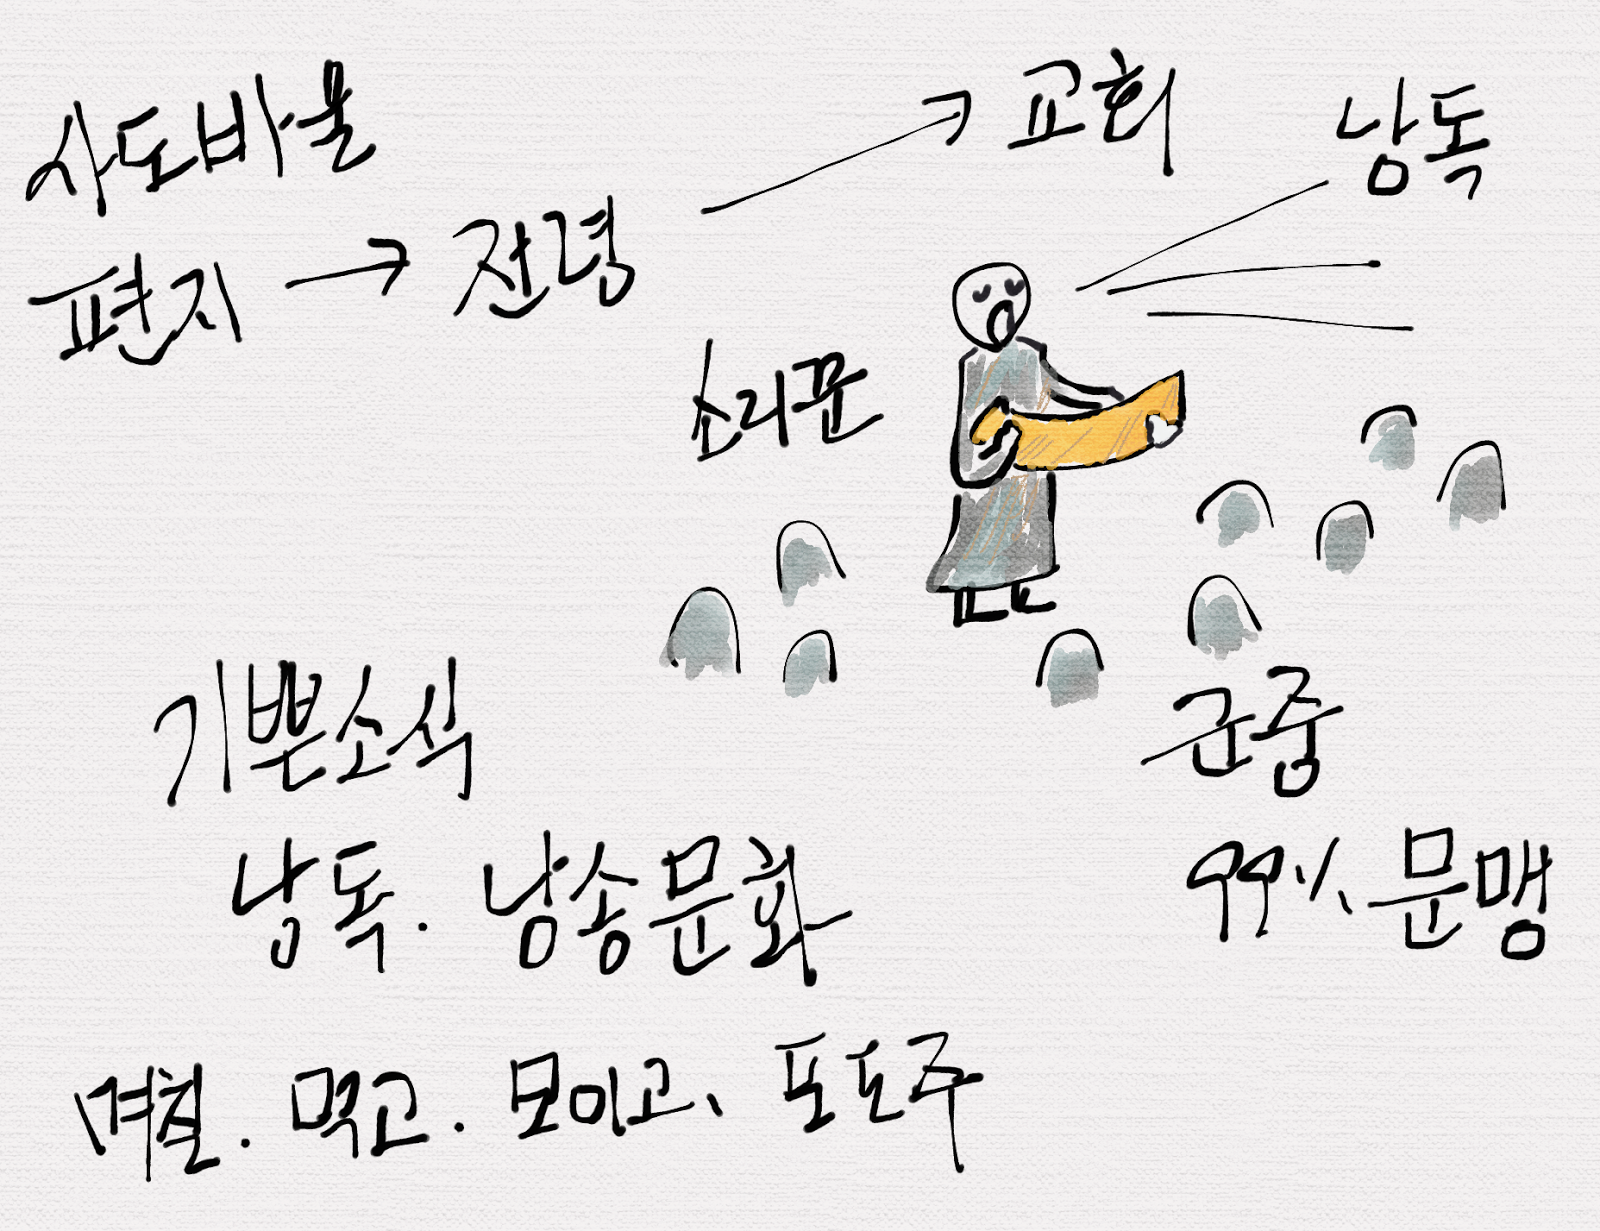 사도바울
편지 → 전령 → 교회
낭독
소리꾼
기쁜소식
낭독. 낭송문화
군중
99% 문맹
며칠. 먹고. 모이고、포도주